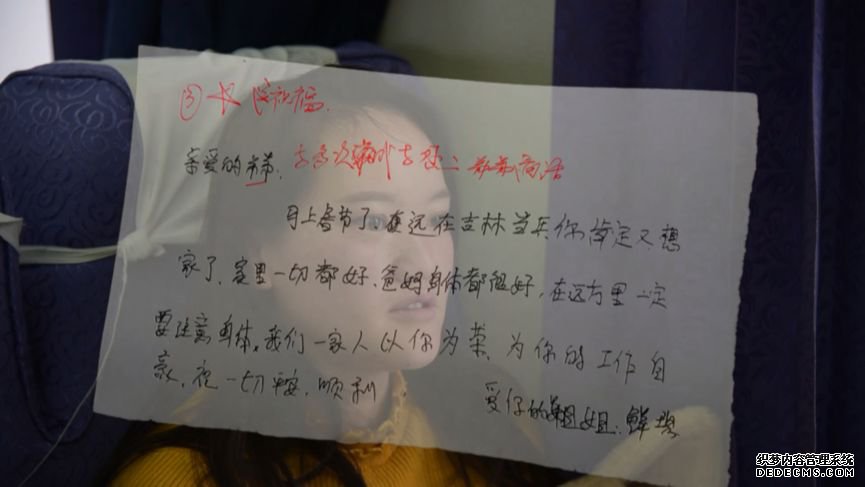 ③ 一
亲爱的弟弟,
马上春节了,在远在吉林当兵你肯定又想
家了,家里一切都好,爸妈身体都很好,在远方里一定
要注意身体,我们一家人以你为荣,为你的工作自
豪,祝一切平安,顺利
爱你的姐姐:
织梦内容管理系统
DEDECMS.COM